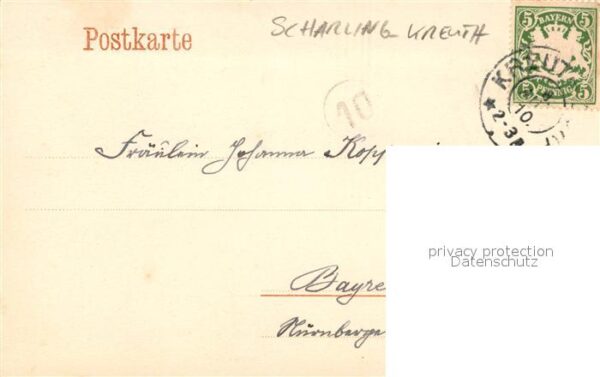 SCHARLING KREUTH
Postkarte
5 BAYERN 5
5 PFENNIG 5
KREUT
10.
2-3
10
Fräulein Johanna Kopp
privacy protection
Datenschutz
Bayre
Nürnberge